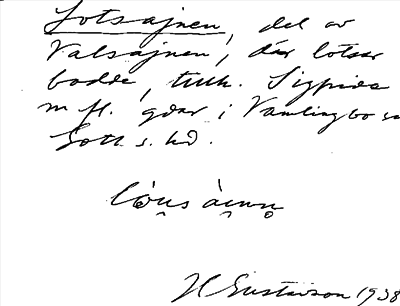 Lotsajnen, del av
Valsajnen, där lotsar
bodde, tillh. Sigfride
m fl. gdar i Vamlingbo sn
Gotl. s. hd.
H Gustavson 1938